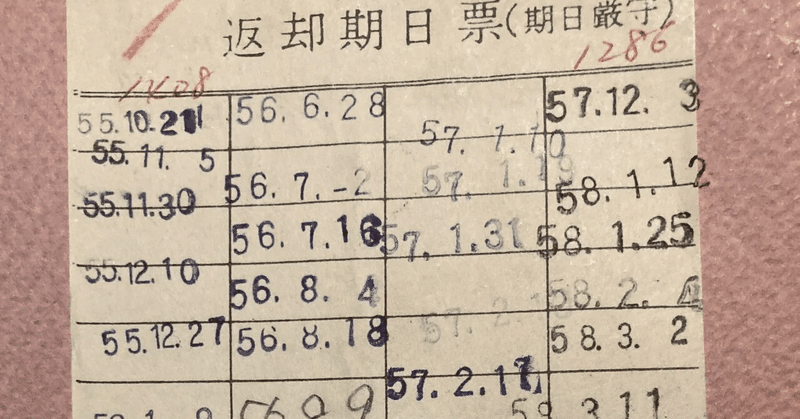 返却期日票(期日厳守)
1286
1408
55.10.21
55.11. 5
55.11.30
55.12.10
55.12.27
56. 6.28
56. 7.-2
56. 7.16
56. 8. 4
56. 8.18
56 9 9
57. 1.10
57. 1.19
57. 1.31
57. 2.
57. 2.17
57.12. 3
58. 1.12
58. 1.25
58. 2. 4
58. 3. 2
58 3 11